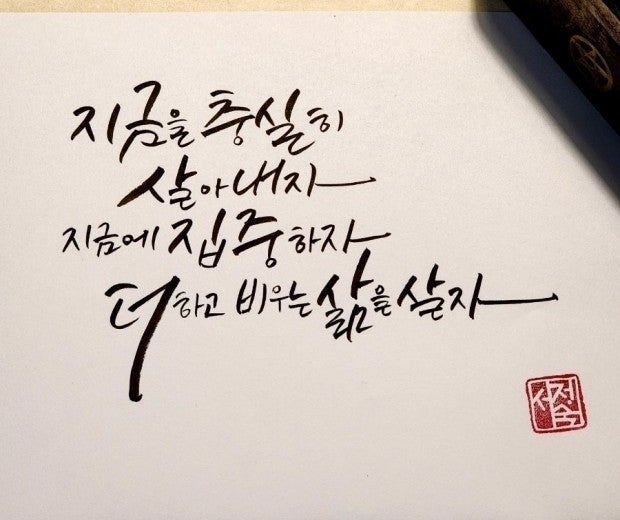 지금을 충실히
살아내자
지금에 집중하자
더하고 비우는 삶을 살자